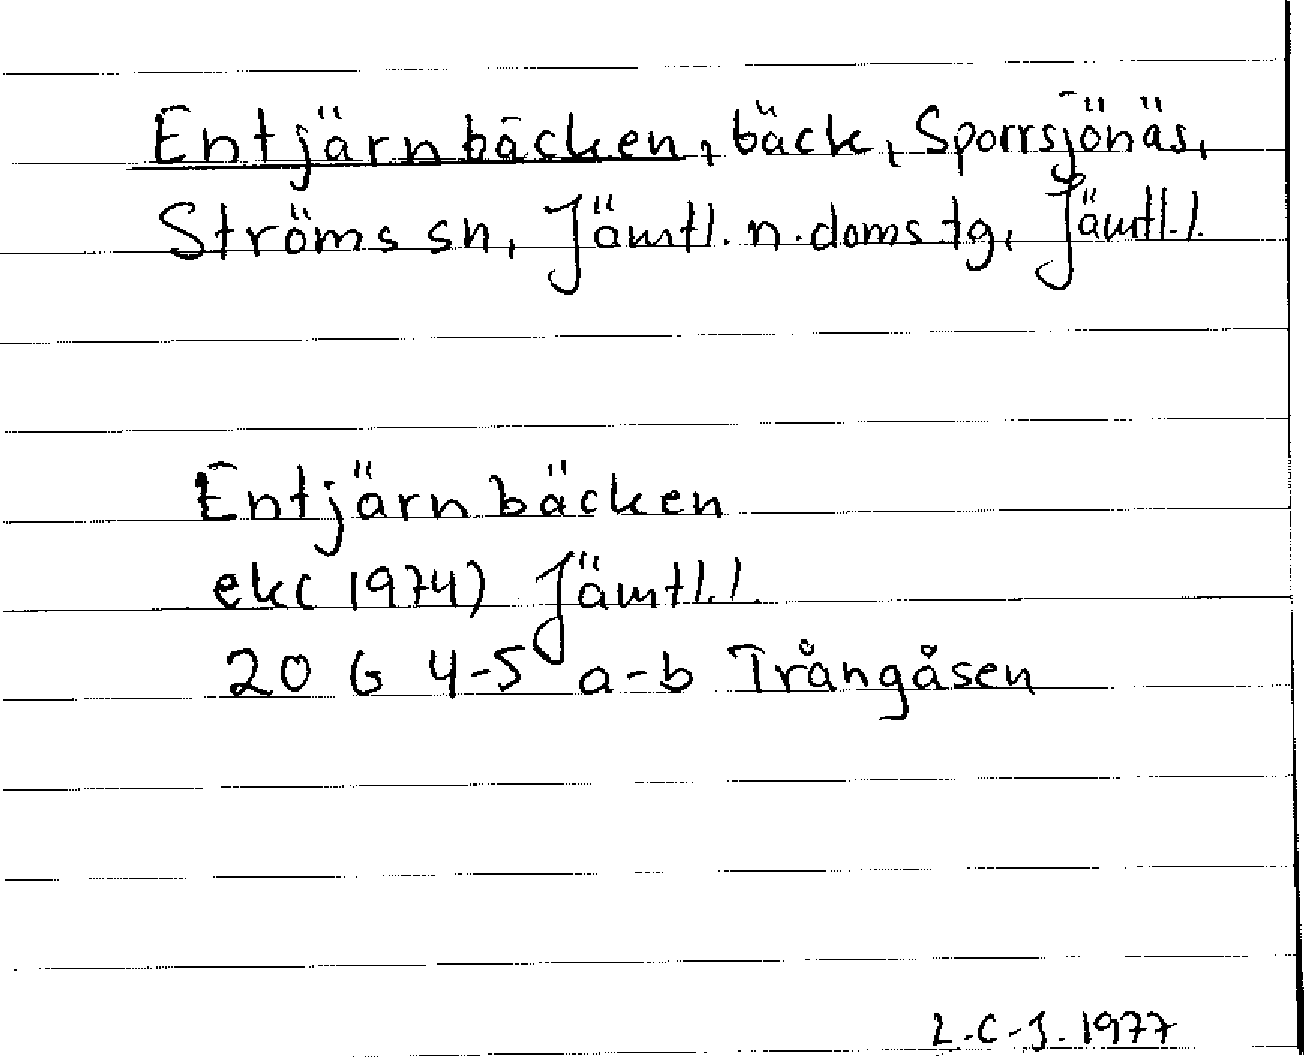 Entjärnbäcken, bäck, Sporrsjönäs,
Ströms sn, Jämtl. n. doms tg, Jämtl.l.
Entjärnbäcken
ek (1974) Jämtl.l.
20 G 4-5 a-b Trångåsen
L.C-J. 1977